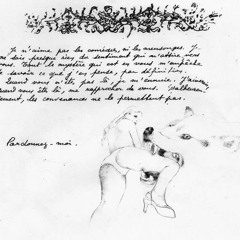 Je n'aime pas les comédies, ni les mensonges. Je
ne dois presque rien du sentiment qui m'attire vers
vous. Tout le mystère qui est en vous m'empêche
de savoir ce que j'en pense, par définition.
Quand vous n'êtes pas là, je m'ennuie. J'aimerais,
quand vous êtes là, me rapprocher de vous. Malheureu-
sement, les convenances ne le permettent pas.
Pardonnez-moi.